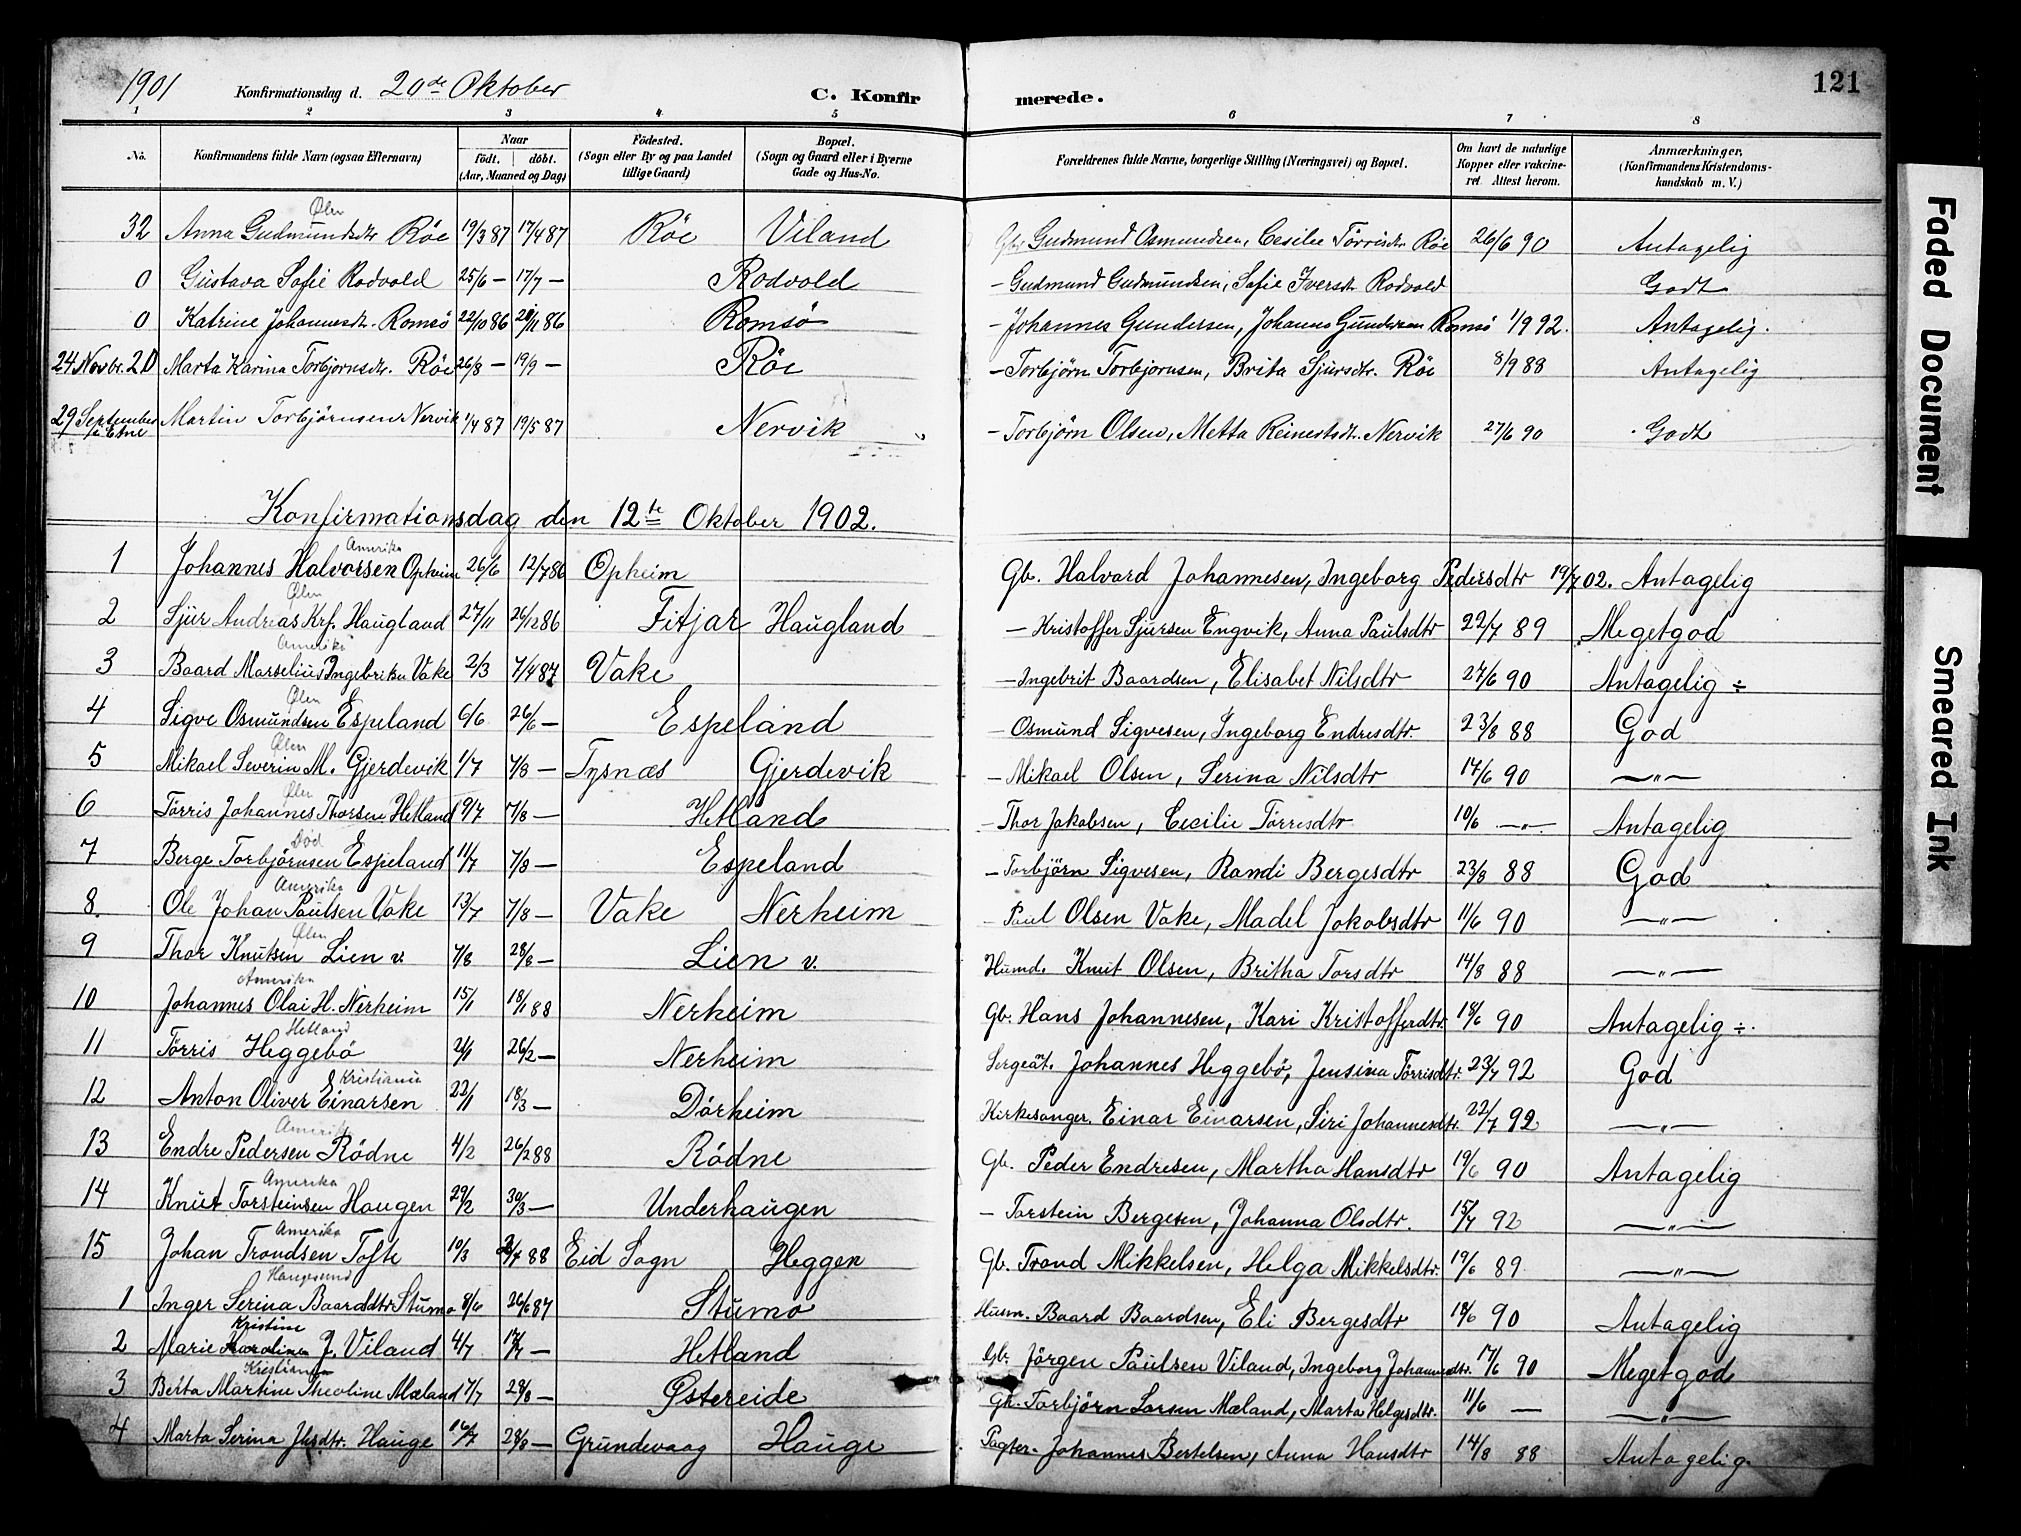 1901 Konfirmationsdag d. 20de Oktober C. Konfirmerede. 121
1 2 3 4 5 6 7 8
No. Konfirmandens fulde Navn (ogsaa Efternavn) Naar født. døbt. (Aar, Maaned og Dag) Fødested. (Sogn eller By og paa Landet tillige Gaard) Bopæl. (Sogn og Gaard eller i Byerne Gade og Hus-No. Forældrenes fulde Navne, borgerlige Stilling (Næringsvei) og Bopæl. Om havt de naturlige Kopper eller vakcineret. Attest herom. Anmærkninger, (Konfirmandens Kristendomskundskab m. V.)
Ølen
32 Anna Gudmundsdtr Röe 19/3 87 17/4 87 Röe Viland Gb. Gudmund Osmundsen, Cesilie Törrisdtr. Röe 26/6 90 Antagelig
0 Gustava Sofie Rodvold 25/6 – 17/7 – Rodvold – Gudmund Gudmundsen, Sofie Iversdt Rodvold Godt
0 Katrine Johannesdt. Romsö 22/10 86 21/11 86 Romsö – Johannes Gundersen, Johannes Gundersen Romsö 1/9 92. Antagelig.
24 Novbr. 20 Marta Karina Torbjørnsdtr. Röe 26/8 – 19/9 – Röe – Torbjörn Torbjornsen, Brita Sjursdtr. Röe 8/9 88 Antagelig
29 September i Etne Martin Torbjörnsen Nervik 1/4 87 19/5 87 Nervik – Torbjörn Olsen, Metta Reinertsdt. Nervik 27/6 90 Godt
Konfirmationsdag den 12te Oktober 1902.
Amerika
1 Johannes Halvorsen Opheim 26/6 12/7 86 Opheim Gb. Halvard Johannesen, Ingeborg Pedersdtr 19/7 02. Antagelig
Ølen
2 Sjur Andreas Krf. Haugland 27/11 26/12 86 Fitjar Haugland – Kristoffer Sjursen Engvik, Anna Paulsdtr 22/7 89 Megetgod
Amerika
3 Baard Marselius Ingebriksen Vake 2/3 7/4 87 Vake – Ingebrit Baardsen, Elisabet Nilsdtr 27/6 90 Antagelig ÷
Ølen
4 Sigve Osmundsen Espeland 6/6 26/6 – Espeland – Osmund Sigvesen, Ingeborg Endresdtr 23/8 88 God
Ølen
5 Mikael Severin M. Gjerdevik 1/7 7/8 – Tysnæs Gjerdevik – Mikael Olsen, Serina Nilsdtr 17/6 90 —"—
Ølen
6 Tørris Johannes Thorsen Hetland 9/7 7/8 – Hetland – Thor Jakobsen, Cecilie Törrisdtr. 10/6 —"— Antagelig
Död
7 Berge Torbjörnsen Espeland 11/7 7/8 – Espeland – Torbjörn Sigvesen, Randi Bergesdtr 23/8 88 God
Amerika
8. Ole Johan Paulsen Vake 13/7 7/8 – Vake Nerheim – Paul Olsen Vake, Madel Jokobsdtr 11/6 90 —"—
Ølen
9 Thor Knutsen Lien v. 7/8 28/8 – Lien v. Husmd. Knut Olsen, Britha Torsdtr 14/8 88 —"—
Amerika
10 Johannes Olai H. Nerheim 15/1 18/1 88 Nerheim Gb. Hans Johannesen, Kari Kristofferdtr. 18/6 90 Antagelig ÷.
Hetland
11 Törris Heggebö 21/1 26/2 – Nerheim Sergeat. Johannes Heggebö, Jensina Törrisdtr. 23/7 92 God
Kristiania
12 Anton Oliver Einarsen 22/1 18/3 – Dörheim Kirkesanger. Einar Einarsen, Siri Johannesdtr. 22/7 92 —"—
Amerika
13 Endre Pedersen Rödne 4/2 26/2 88 Rödne Gb. Peder Endresen, Martha Hansdtr 19/6 90 Antagelig
Amerika
14 Knut Torsteinsen Haugen 29/2 30/3 – Underhaugen – Torstein Bergesen, Johanna Olsdtr. 15/7 92 —"—
Amerika
15 Johan Trondsen Tofte 10/3 2/4 88 Eid Sogn Heggen Gb. Trond Mikkelsen, Helga Mikkelsdtr. 19/6 89 —"—
Haugesund
1 Inger Serina Baarddtr Stumo 8/6 26/6 87 Stumo Husm. Baard Baardsen, Eli Bergesdtr 18/6 90 Antagelig
Kristine
2 Marie Karoline J. Viland 4/7 17/7 – Hetland Gb. Jörgen Paulsen Viland, Ingeborg Johannesdtr. 17/6 90 Megetgod
Kristiania
3 Berta Martine Theoline Mæland 7/7 28/8 – Østereide Gb. Torbjörn Larsen Mæland, Marta Helgesdtr. 11/6 — —"—
4 Marta Serina Jhsdtr. Hauge 16/7 28/8 – Grundevaag Hauge Pagter. Johannes Bertelsen, Anna Hansdtr 14/8 88 Antagelig.
Faded Document
Smeared Ink